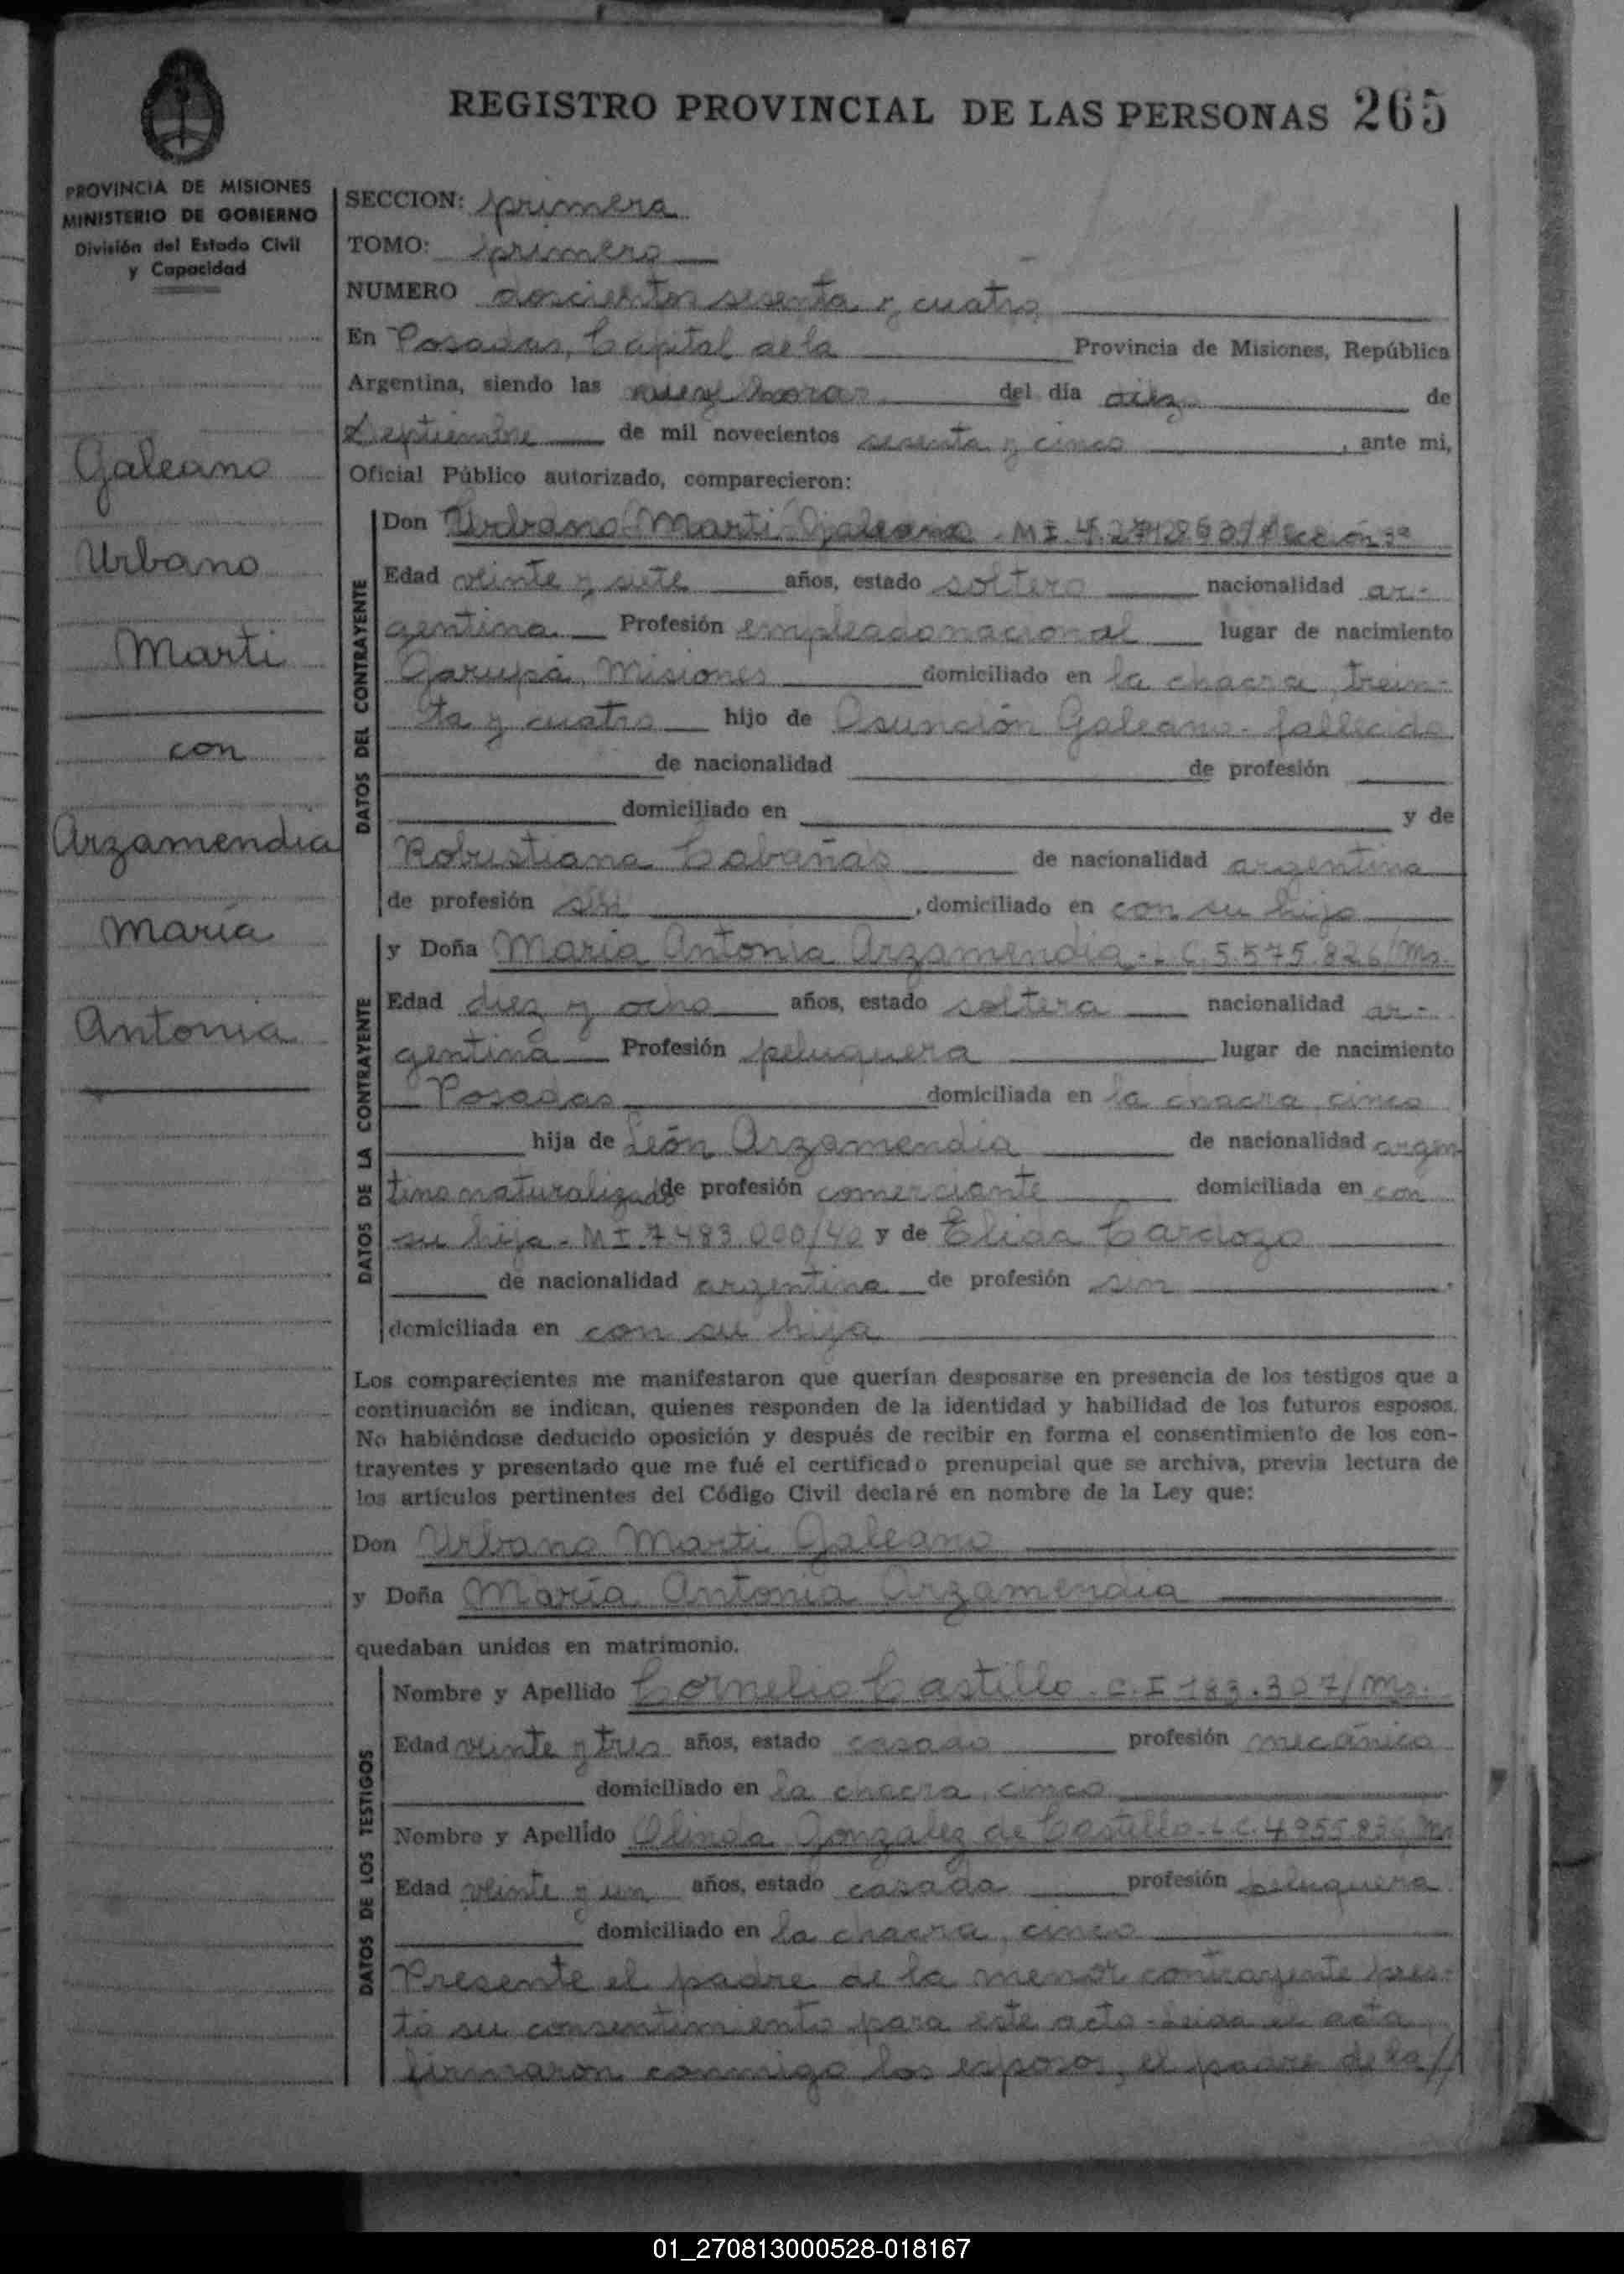 REGISTRO PROVINCIAL DE LAS PERSONAS 265
PROVINCIA DE MISIONES
MINISTERIO DE GOBIERNO
División del Estado Civil
y Capacidad
Galeano
Urbano
Marti
con
Arzamendia
María
Antonia
SECCION: primera
TOMO: primero
NUMERO doscientos sesenta y cuatro
En Posadas, Capital de la Provincia de Misiones, República
Argentina, siendo las horas del día diez de
Septiembre de mil novecientos sesenta y cinco, ante mi,
Oficial Público autorizado, comparecieron:
DATOS DEL CONTRAYENTE
Don Urbano Marti Galeano - M I
Edad veinte y siete años, estado soltero nacionalidad ar-
gentina Profesión empleado nacional lugar de nacimiento
Garupá, Misiones domiciliado en la chacra trein-
ta y cuatro hijo de Asunción Galeano - fallecido
de nacionalidad de profesión
domiciliado en y de
Robustiana Cabañas de nacionalidad argentina
de profesión , domiciliado en con su hijo
DATOS DE LA CONTRAYENTE
y Doña María Antonia Arzamendia - C, 5.575.826/Ms.
Edad diez y ocho años, estado soltera nacionalidad ar-
gentina Profesión peluquera lugar de nacimiento
Posadas domiciliada en la chacra cinco
hija de León Arzamendia de nacionalidad argen
tino naturalizado de profesión comerciante domiciliada en con
su hija - M I 7.483.000/40 y de Elida Cardozo
de nacionalidad argentina de profesión sin
domiciliada en con su hija
Los comparecientes me manifestaron que querían desposarse en presencia de los testigos que a
continuación se indican, quienes responden de la identidad y habilidad de los futuros esposos.
No habiéndose deducido oposición y después de recibir en forma el consentimiento de los con-
trayentes y presentado que me fué el certificado prenupcial que se archiva, previa lectura de
los artículos pertinentes del Código Civil declaré en nombre de la Ley que:
Don Urbano Marti Galeano
y Doña María Antonia Arzamendia
quedaban unidos en matrimonio.
DATOS DE LOS TESTIGOS
Nombre y Apellido Cornelio Castillo - C. I 183.307/Ms.
Edad veinte y tres años, estado casado profesión mecánico
domiciliado en la chacra cinco
Nombre y Apellido Olinda Gonzalez de Castillo - L.C. 4.955.836/Ms
Edad veinte y un años, estado casada profesión peluquera
domiciliado en la chacra cinco
Presente el padre de la menor contrayente pres-
tó su consentimiento para este acto - Leida el acta
firmaron conmigo los esposos, el padre de la //
01_270813000528-018167